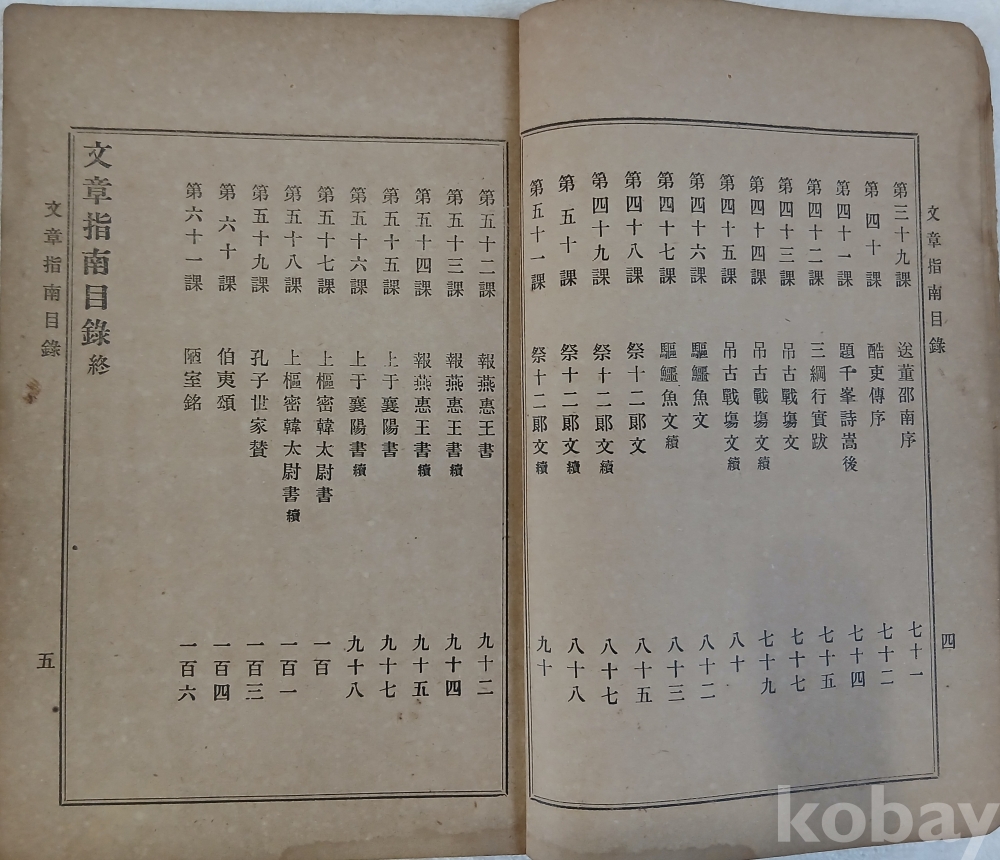 文章指南目錄
第三十九課 送董邵南序 七十一
第四十課 酷吏傳序 七十二
第四十一課 題千峯詩嵩後 七十四
第四十二課 三綱行實跋 七十五
第四十三課 吊古戰塲文 七十七
第四十四課 吊古戰塲文續 七十九
第四十五課 吊古戰塲文續 八十
第四十六課 驅鱷魚文 八十二
第四十七課 驅鱷魚文續 八十三
第四十八課 祭十二郞文 八十五
第四十九課 祭十二郞文續 八十七
第五十課 祭十二郞文續 八十八
第五十一課 祭十二郞文續 九十
四
第五十二課 報燕惠王書 九十二
第五十三課 報燕惠王書續 九十四
第五十四課 報燕惠王書續 九十五
第五十五課 上于襄陽書 九十七
第五十六課 上于襄陽書續 九十八
第五十七課 上樞密韓太尉書 一百
第五十八課 上樞密韓太尉書續 一百一
第五十九課 孔子世家賛 一百三
第六十課 伯夷頌 一百四
第六十一課 陋室銘 一百六
文章指南目錄終
文章指南目錄
五
kobay